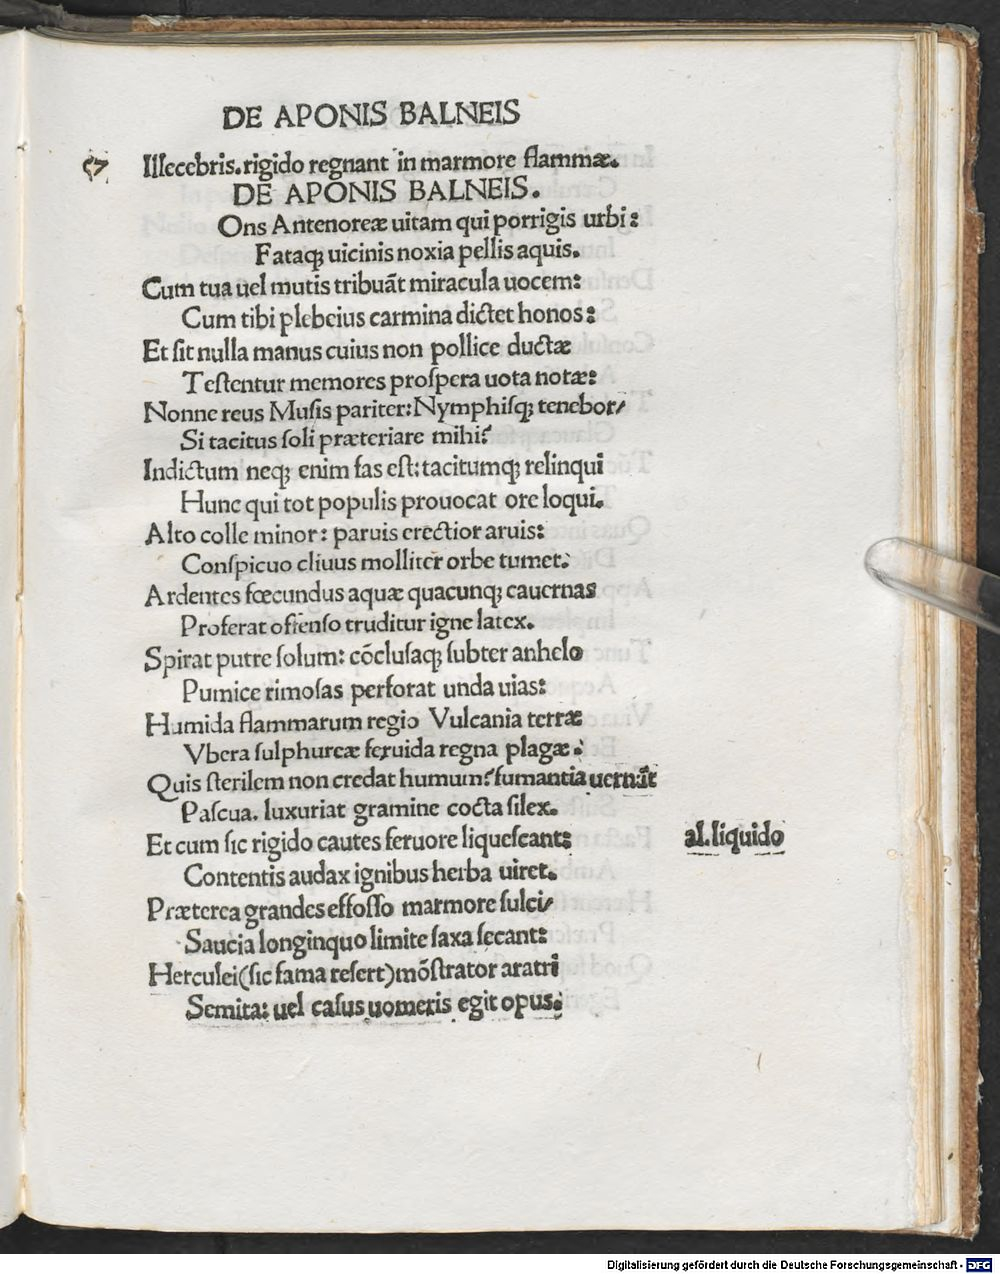 DE APONIS BALNEIS
Illecebris.rigido regnant in marmore flammæ.
DE APONIS BALNEIS.
Ons Antenoreæ uitam qui porrigis urbi:
Fataqꝫ uicinis noxia pellis aquis.
Cum tua uel mutis tribuãt miracula uocem:
Cum tibi plebeius carmina dictet honos:
Et ſit nulla manus cuius non pollice ductæ
Teſtentur memores proſpera uota notæ:
Nonne reus Muſis pariter:Nymphiſqꝫ tenebor/
Si tacitus ſoli præteriare mihi?
Indictum neqꝫ enim fas eſt:tacitumqꝫ relinqui
Hunc qui tot populis prouocat ore loqui.
Alto colle minor: paruis erectior aruis:
Conſpicuo cliuus molliter orbe tumet.
Ardentes fœcundus aquæ quacunqꝫ cauernas
Proferat offenſo truditur igne latex.
Spirat putre ſolum: cõcluſaqꝫ ſubter anhelo
Pumice rimoſas perforat unda uias:
Humida flammarum regio Vulcania terræ
Vbera ſulphureæ feruida regna plagæ.
Quis ſterilem non credat humum?fumantia uernãt
Paſcua. luxuriat gramine cocta ſilex.
Et cum ſic rigido cautes feruore liqueſcant:
al. liquido
Contentis audax ignibus herba uiret.
Præterea grandes effoſſo marmore ſulci/
Saucia longinquo limite ſaxa ſecant:
Herculei(ſic fama refert)mõſtrator aratri
Semita: uel caſus uomeris egit opus.
Digitalisierung gefördert durch die Deutsche Forschungsgemeinschaft - DFG